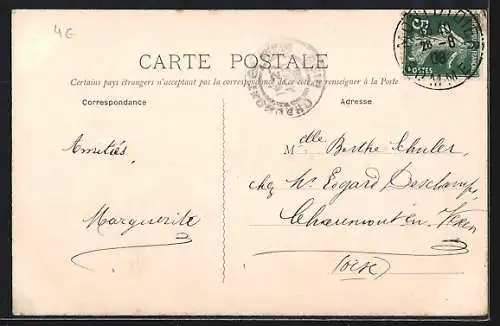 4G
CARTE POSTALE
Certains pays étrangers n'acceptent pas la correspondance de ce côté se renseigner à la Poste
Correspondance
Adresse
5c
POSTES
28-8
08
CHAUMONT
Amitiés,
Marguerite
Mdlle Berthe Chuler,
chez Mr Edgard Deschamps,
Chaumont en Vexin
(Oise)